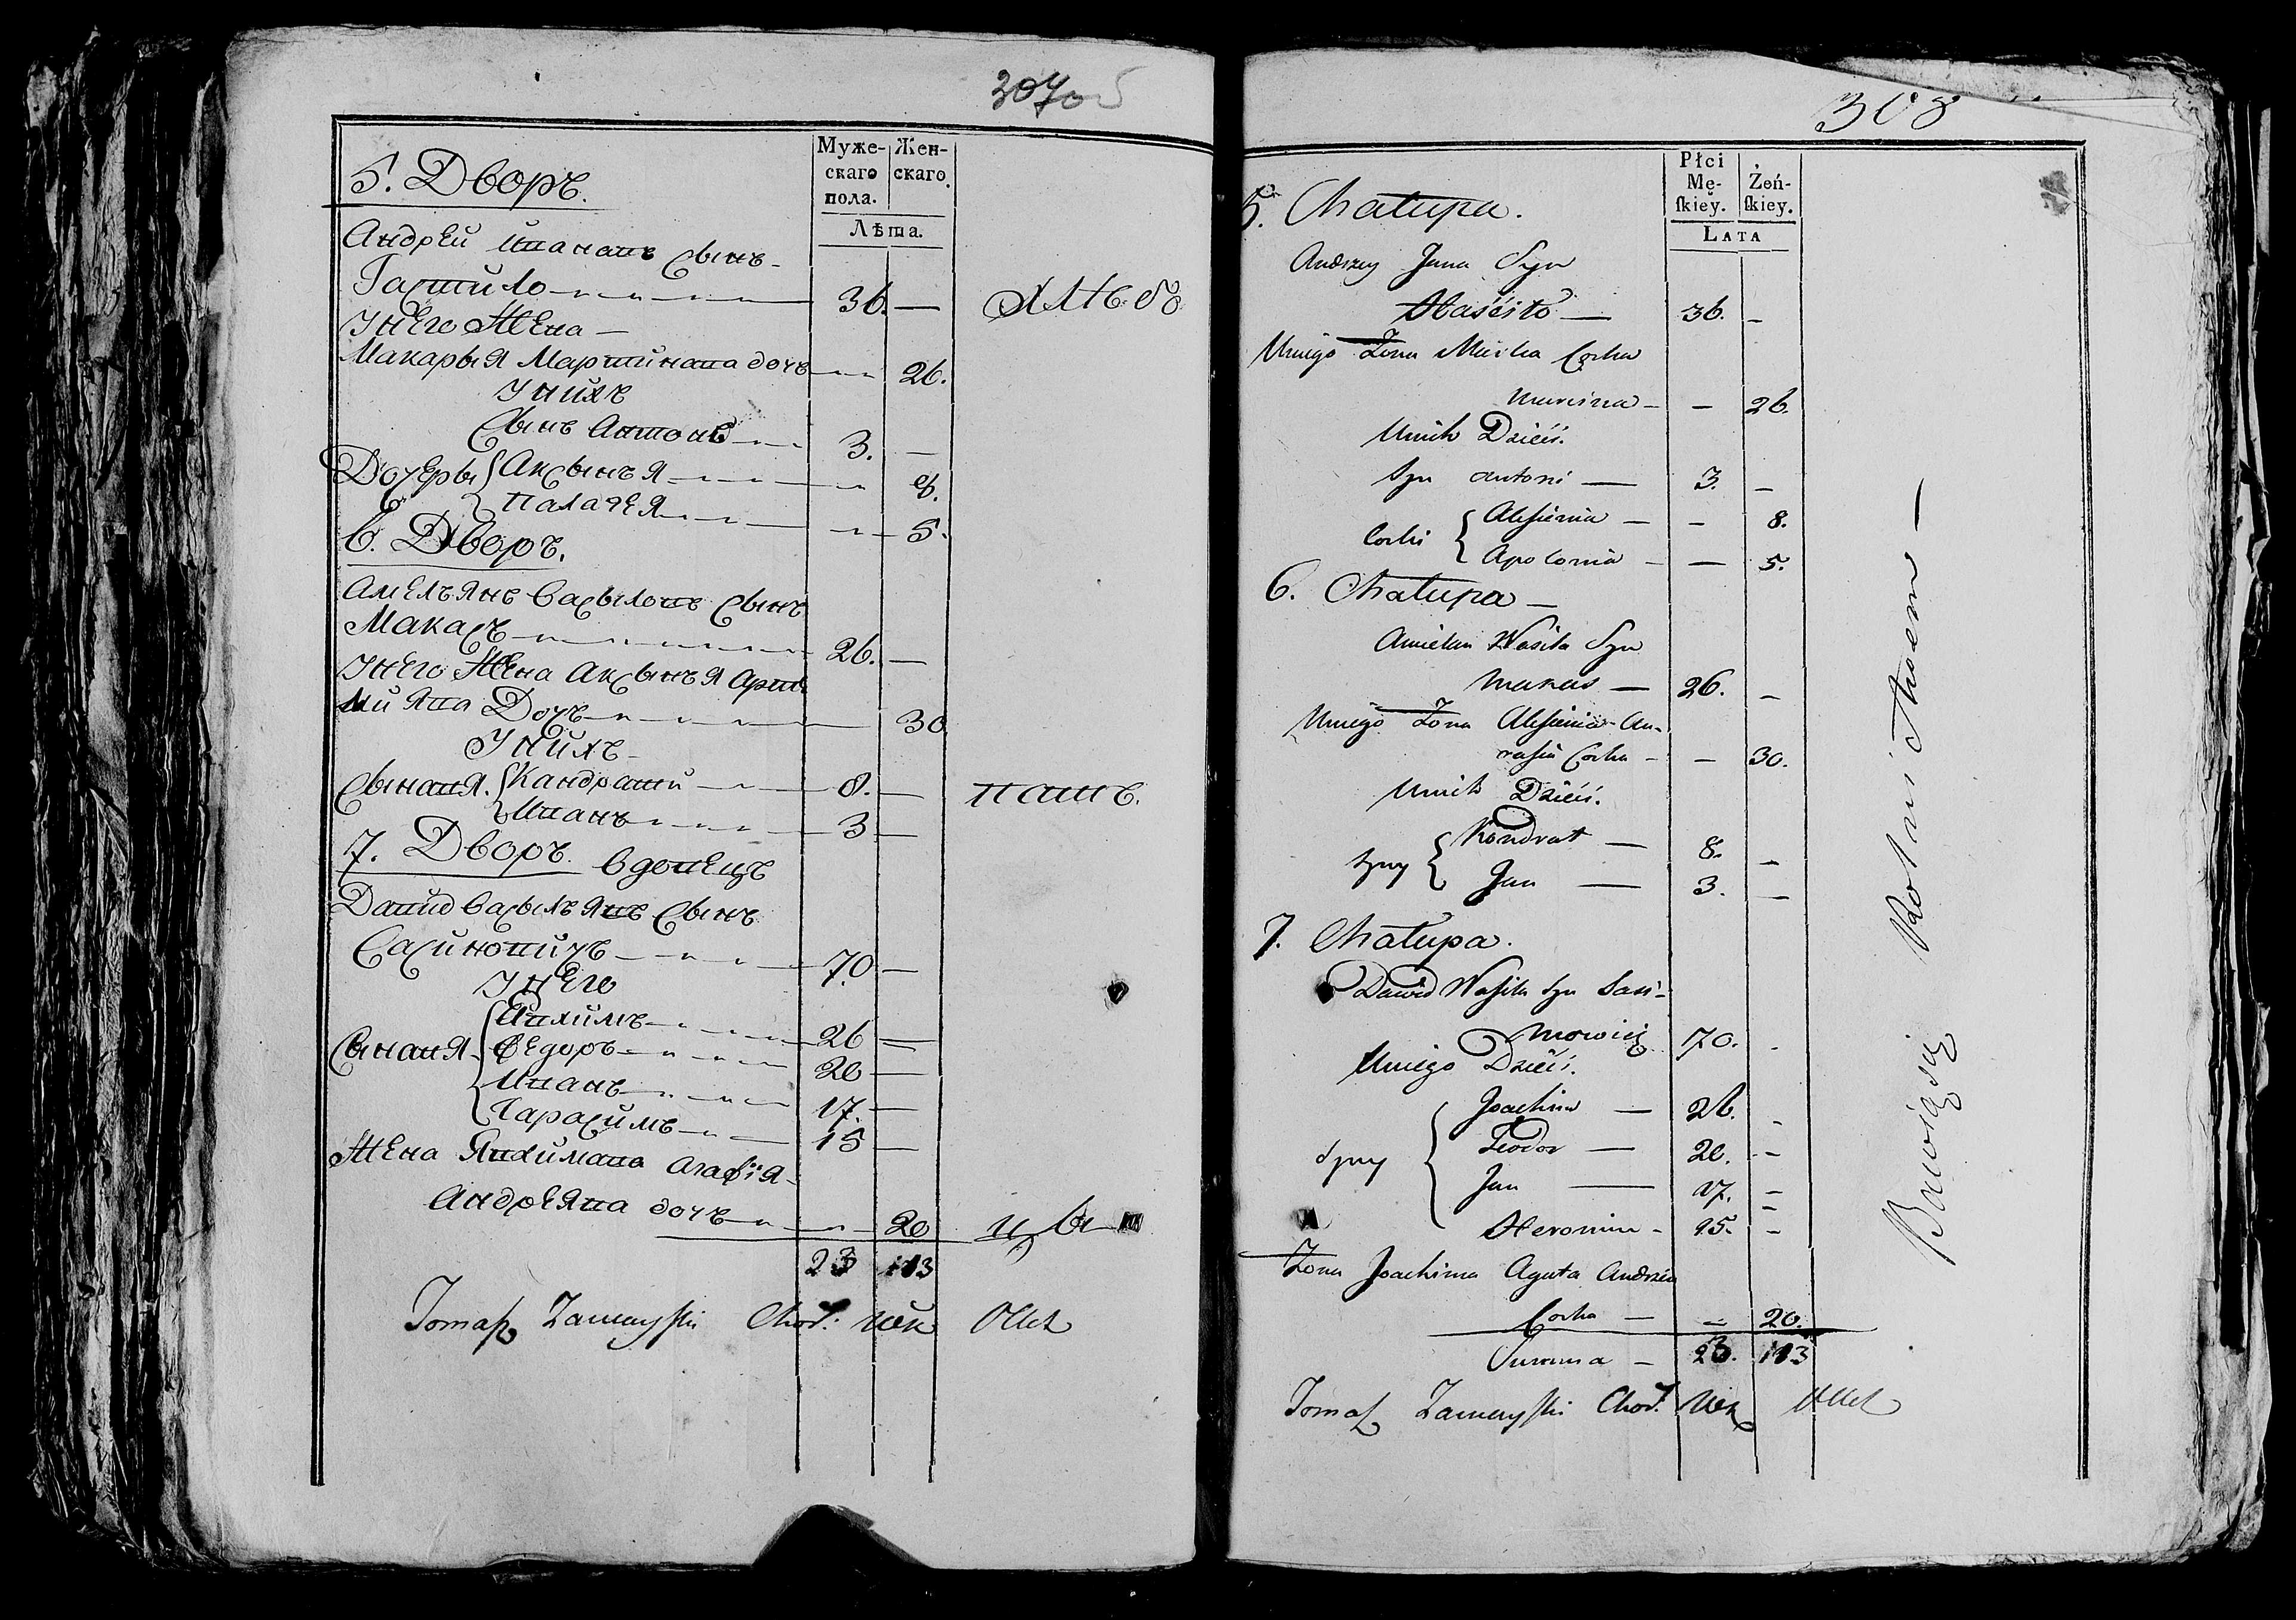 307об
5. Дворъ.
Муже-
скаго
пола.
Жен-
скаго.
Лѣта.
Андрей Иванавъ Сынъ
Гастило 36. —
Унего Жена —
Макарыя Мартинава дочь 26.
Унихъ
Сынъ Антонъ 3. —
Дочеры Аксынъя 8.
Палагея 5.
6. Дворъ.
Амелъянъ Васыловъ Сынъ
Макасъ 26. —
Унего Жена Аксынъя
Дочъ 30
Унихъ
Сынавя Кандратй 8. —
Иванъ 3 —
7. Дворъ. Вдовецъ
Давид Васылъявъ Сынъ
Сасиновичъ 70 —
Унего
Сынавя Яхимъ 26 —
Федоръ 20 —
Иванъ 17. —
Гарасимъ 15 —
Жена Яхимава Агафія
Андреява дочъ 20
23 113
хлѣбо
пашъ.
Tomasz Zamenyski Chor:
308
Płci
Mę-
skiey.
Żeń-
skiey.
LATA
5. Chałupa.
Andrzey Jana Syn
Haściło — 36. —
Uniego Żona Corka
— 26.
Unich Dzieci.
Syn Antoni — 3. —
Corki Alesienia — — 8.
Apolonia — — 5.
6. Chałupa —
Amielan Wasila Syn
Makas — 26. —
Uniego Żona Alesienia
Corka — — 30.
Unich Dzieci.
Syny Kondrat — 8. —
Jan — 3. —
7. Chałupa.
Dawid Wasila Syn Sasi-
nowicz 70. -
Uniego Dzieci.
Syny Joachim — 26. -
Teodor — 20. -
Jan — 17. -
Heronim - 15. -
Żona Joachima Agata Andrzeia
Corka — — 20.
Summa — 23. 113
Tomasz Zamenyski Chor: